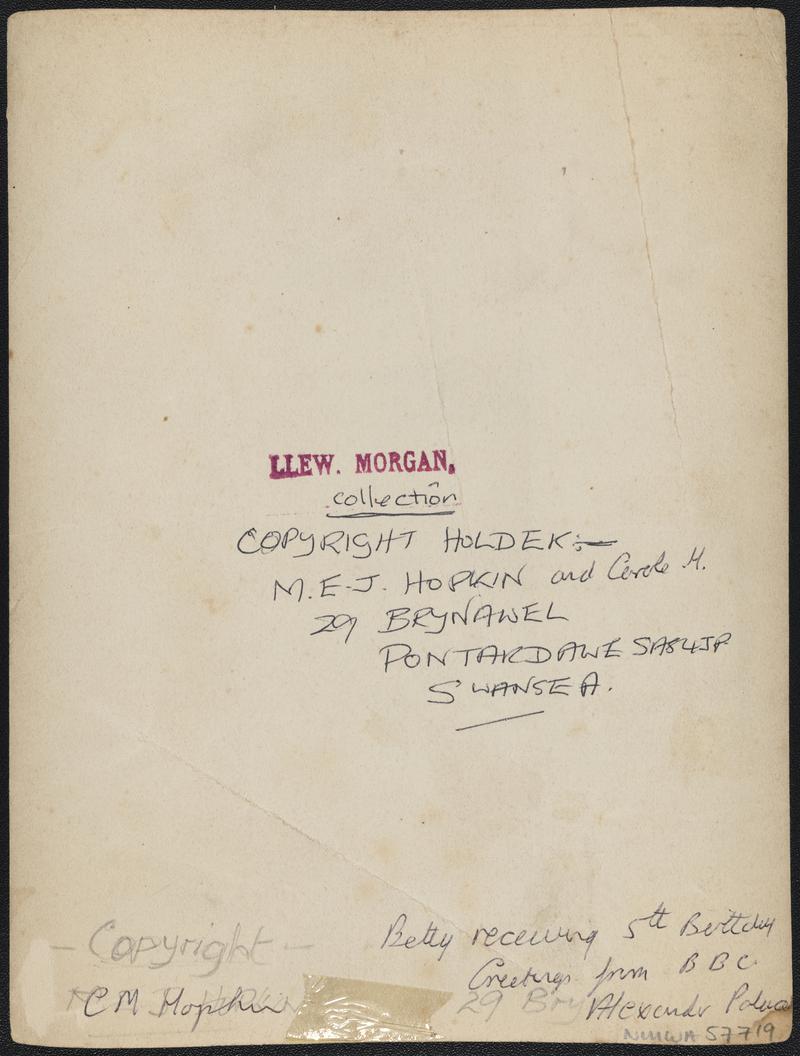 LLEW. MORGAN.
collection
COPYRIGHT HOLDER:-
M.E.J. HOPKIN and Carole M.
29 BRYNAWEL
PONTARDAWE SA8 4JP
SWANSEA.
- Copyright -
Betty receiving 5th Birthday
Greetings from BBC
CM Hopkin
29 Bry
Alexandr Palace
NMWA 57719